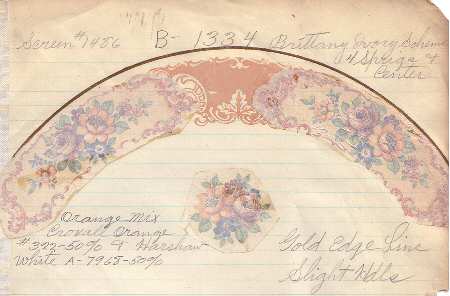 Screen #1486 B-1334 Brittany Ivory Scheme
4 Sprigs &
Center
Orange Mix
Croxall Orange
#392-50% & Warshaw
White A-7968-50%
Gold Edge Line
Slight Hdls